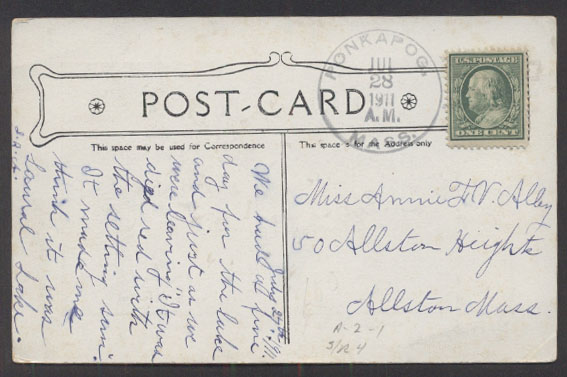 POST-CARD
PONKAPOG.
JUL
28
1911
A.M.
MASS.
U.S. POSTAGE
ONE CENT
This space may be used for Correspondence
This space is for the Address only
July 27th
We had a fine
day for the lake
and just as we
were leaving it was
dyed red with
the setting sun.
It made me
think it was
Laurel Lake.
Miss Annie F. V. Alley
50 Allston Heights
Allston Mass.
A-2-1